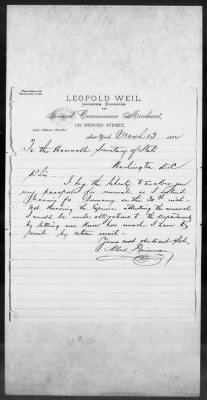 LEOPOLD WEIL,
IMPORTER, EXPORTER
AND
General Commission Merchant,
MERCER STREET,
New York, March 13
To the Honorable Secretary of State
Washington D.C.
D. Sir
I beg the liberty to enclose you
my passport for renewal, as I intend
leaving for Germany on the 20th inst.
Not knowing the expense attending the renewal
I would be under obligations to the department
by letting me know how much I have to
remit by return mail.
Yours most obedient